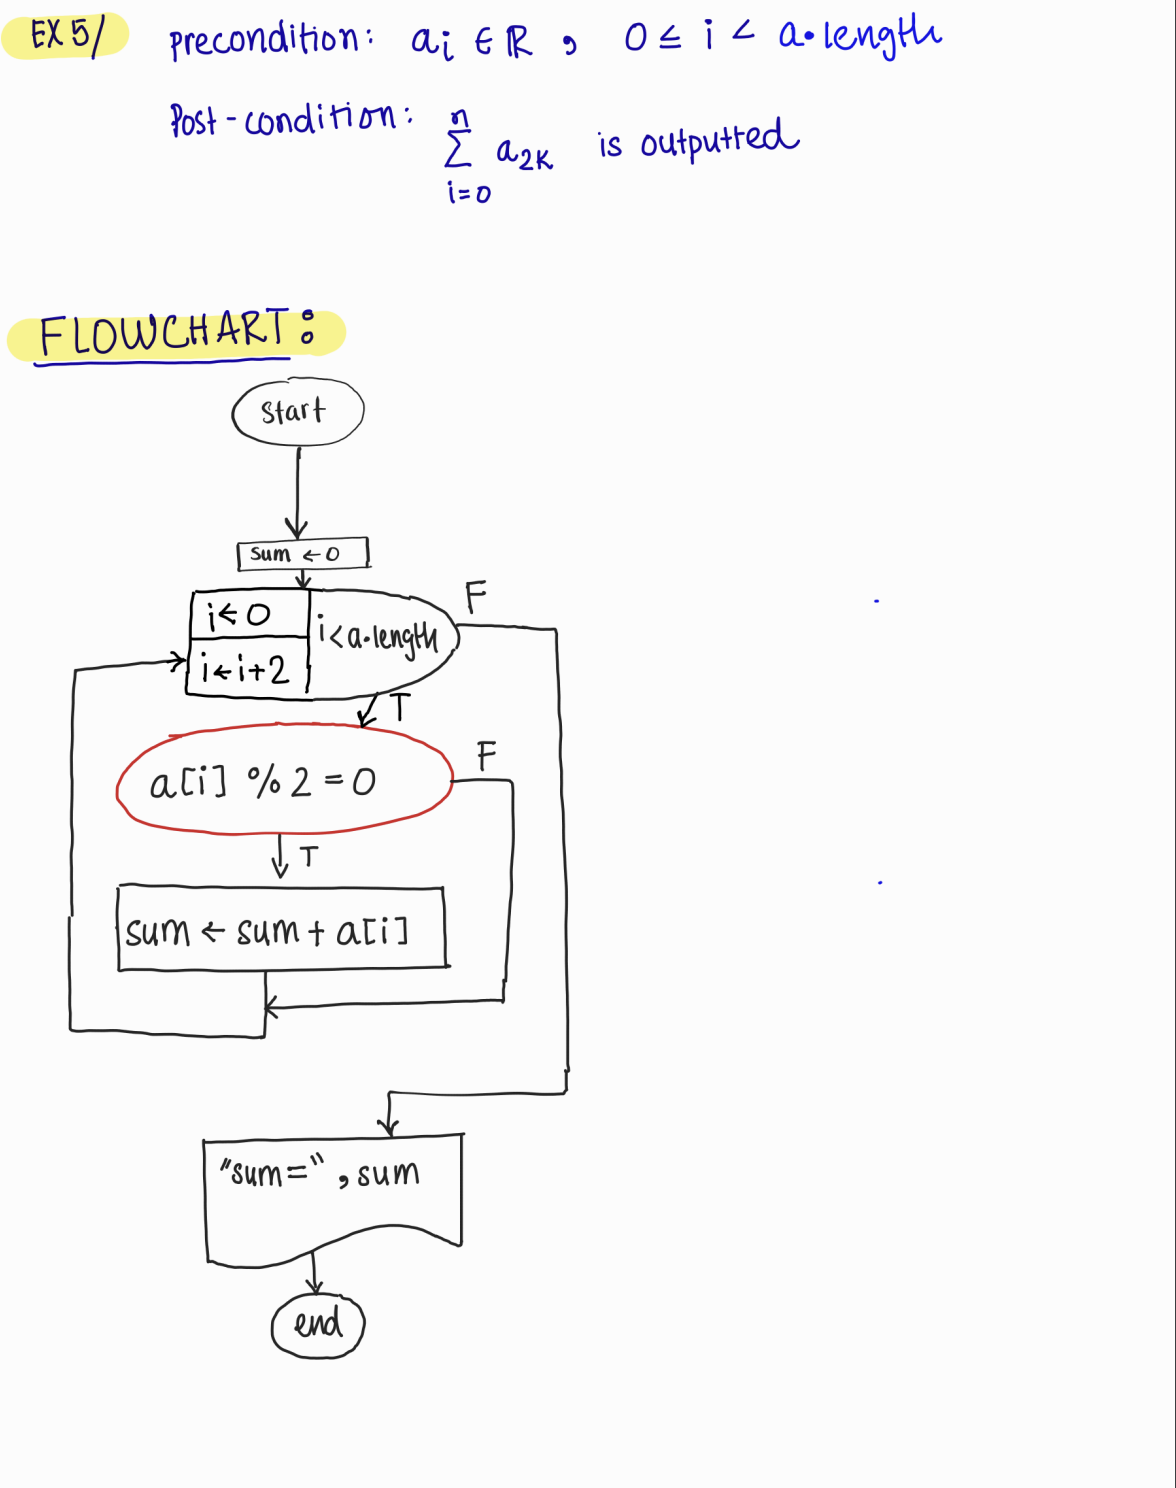 EX 5/ precondition: aᵢ ∈ ℝ , 0 ≤ i < a.length
Post-condition: n
∑ a₂ₖ is outputted
i=0
FLOWCHART:
start
sum ← 0
i ← 0
F
i < a.length
i ← i+2
T
F
a[i] % 2 = 0
T
sum ← sum + a[i]
"sum=", sum
end